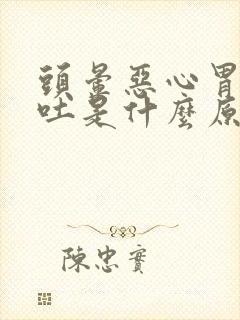 頭暈惡心胃
吐是什麼原
陳忠實